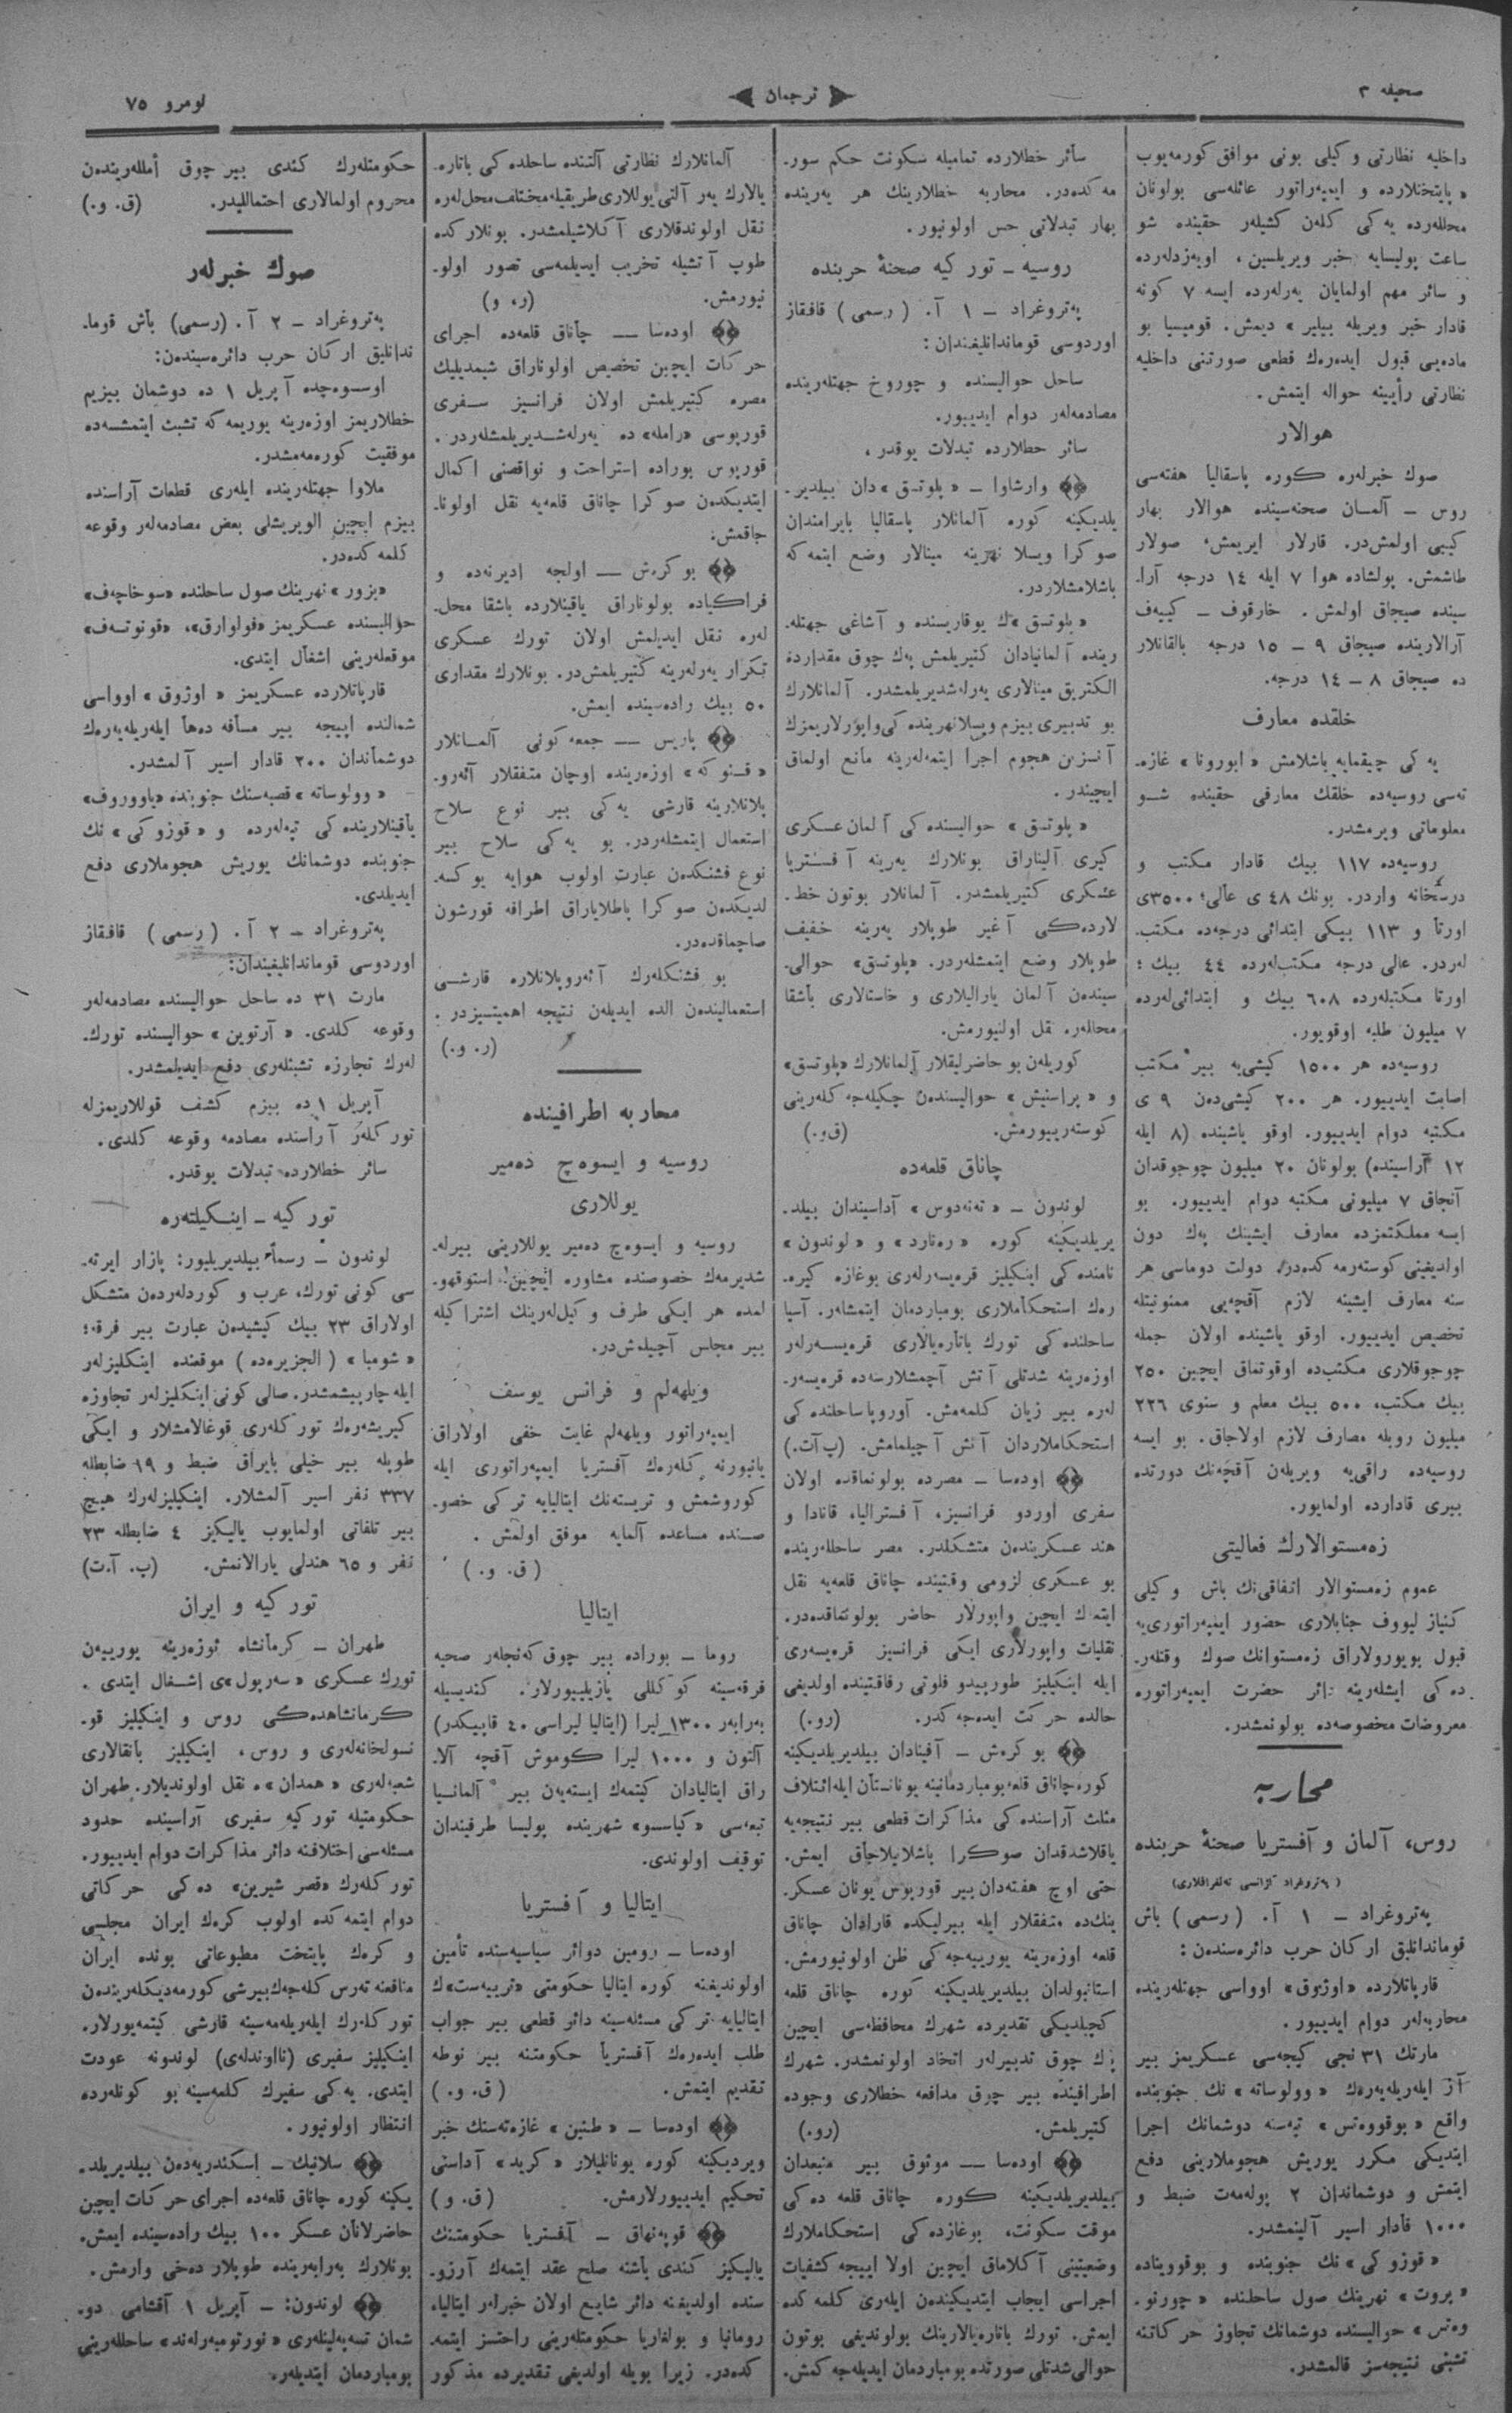 صحیفه ٣
ترجمان
نومرو ٧٥
داخلیه نظارتی وکیلی بونی موافق کورمه‌یوب
«پایتختلارده و ایمپه‌راتور عائله‌سی بولونان
محللەرده یه‌کی کلەن کشیلەر حقینده شو
ساعت پولیسایه خبر ویریلسین، اویه‌زدلەرده
و سائر مهم اولمایان یه‌رلەرده ایسه ٧ کونه
قادار خبر ویریله بیلیر» دیمش. قومیسیا بو
ماده‌یی قبول ایده‌رەك قطعی صورتنی داخلیه
نظارتی رأیینه حواله ایتمش.
هوالار
صوك خبرلەره کوره پاسقالیا هفته‌سی
روس – آلمان صحنه‌سینده هوالار بهار
کیبی اولمش‌در. قارلار ایریمش، صولار
طاشمش. پولشاده هوا ٧ ایله ١٤ درجه آرا-
سینده صیجاق اولمش. خارقوف – کییەف
آرالارینده صیجاق ٩ – ١٥ درجه بالقانلار
ده صیجاق ٨ – ١٤ درجه.
خلقده معارف
یه‌کی چیقمایه باشلامش «ایورونا» غازه-
ته‌سی روسیه‌ده خلقك معارفی حقینده شو
معلوماتی ویرمشدر.
روسیه‌ده ١١٧ بیك قادار مکتب و
درسخانه واردر. بونك ٤٨ ی عالی؛ ٣٥٠٠ی
اورتا و ١١٣ بیکی ابتدائی درجه‌ده مکتب-
لەردر. عالی درجه مکتب‌لەرده ٤٤ بیك؛
اورتا مکتبلەرده ٦٠٨ بیك و ابتدائی‌لەرده
٧ میلیون طلبه اوقویور.
روسیه‌ده هر ١٥٠٠ کیشی‌یه بیر مکتب
اصابت ایدییور. هر ٢٠٠ کیشی‌دەن ٩ ی
مکتبه دوام ایدییور. اوقو یاشینده (٨ ایله
١٢ آراسینده) بولونان ٢٠ میلیون چوجوقدان
آنجاق ٧ میلیونی مکتبه دوام ایدییور. بو
ایسه مملکتمزده معارف ایشینك پەك دون
اولدیغینی کوسته‌رمه‌کده‌در. دولت دوماسی هر
سنه معارف ایشینه لازم آقچه‌یی ممنونیتله
تخصیص ایدییور. اوقو یاشینده اولان جمله
چوجوقلاری مکتب‌ده اوقوتماق ایچین ٢٥٠
بیك مکتب، ٥٠٠ بیك معلم و سنوی ٢٢٦
میلیون روبله مصارف لازم اولاجاق. بو ایسه
روسیه‌ده راقی‌یه ویریلەن آقچه‌نك دورتده
بیری قادارده اولمایور.
زەمستوالارك فعالیتی
عموم زەمستوالار اتفاقی‌نك باش وکیلی
کنیاز لیووف جنابلاری حضور ایمپه‌راتوری‌یه
قبول بویورولاراق زەمستوانك صوك وقتلەر-
ده‌کی ایشلەرینه دائر حضرت ایمپه‌راتوره
معروضات مخصوصه‌ده بولونمشدر.
محاربه
روس، آلمان و آفستریا صحنهٔ حربنده
(پەتروغراد آژانسی تەلغرافلاری)
پەتروغراد – ١ آ. (رسمی) باش
قوماندانلیق ارکان حرب دائره‌سندەن:
قارپاتلارده «اوژوق» اوواسی جهتلەرینده
محاربه‌لەر دوام ایدییور.
مارتك ٣١ نجی کیجه‌سی عسکریمز بیر
آز ایلەریلەیه‌رەك «وولوساته» نك جنوبنده
واقع «بوقووه‌تس» تپه‌سنه دوشمانك اجرا
ایتدیکی مکرر یوریش هجوملارینی دفع
ایتمش و دوشماندان ٢ پولەمەت ضبط و
١٠٠٠ قادار اسیر آلینمشدر.
«قوزوکی» نك جنوبنده و بوقوویناده
«پروت» نهرینك صول ساحلنده «چورنو-
وەتس» حوالیسنده دوشمانك تجاوز حرکاتنه
تشبثی نتیجه‌سز قالمشدر.
سائر خطلارده تمامیله سکونت حکم سور-
مه‌کده‌در. محاربه خطلارینك هر یه‌رینده
بهار تبدلاتی حس اولونیور.
روسیه – تورکیه صحنهٔ حربنده
پەتروغراد – ١ آ. (رسمی) قافقاز
اوردوسی قوماندانلیغندان:
ساحل حوالیسنده و چوروخ جهتلەرینده
مصادمه‌لەر دوام ایدییور.
سائر خطلارده تبدلات یوقدر،
وارشاوا – «پلوتسق»دان بیلدیر-
یلدیکینه کوره آلمانلار پاسقالیا بایرامندان
صوکرا ویسلا نهرینه مینالار وضع ایتمه‌که
باشلامشلاردر.
«پلوتسق»ك یوقاریسنده و آشاغی جهتلە-
رینده آلمانیادان کتیریلمش پەك چوق مقدارده
الکتریق مینالاری یه‌رله‌شدیریلمشدر. آلمانلارك
بو تدبیری بیزم ویسلا نهرینده‌کی واپورلاریمزك
آنسزین هجوم اجرا ایتمه‌لەرینه مانع اولماق
ایچیندر.
«پلوتسق» حوالیسنده‌کی آلمان عسکری
کیری آلیناراق بونلارك یه‌رینه آفستریا
عسکری کتیریلمشدر. آلمانلار بوتون خط-
لارده‌کی آغیر طوپلار یه‌رینه خفیف
طوپلار وضع ایتمشلەردر. «پلوتسق» حوالی-
سیندەن آلمان یارالیلاری و خاستالاری باشقا
محللەره نقل اولنیورمش.
کوریلەن بو حاضرلیقلار آلمانلارك «پلوتسق»
و «پراسنیش» حوالیسندەن چکیلەجه‌کلەرینی
کوسته‌ریبورمش. (ق.و.)
چاناق قلعه‌ده
لوندون – «تەنەدوس» آداسیندان بیلد-
یریلدیکینه کوره «رەنارد» و «لوندون»
نامنده‌کی اینکیلیز قره‌یسه‌رلەری بوغازه کیره-
رەك استحکاملاری بومباردمان ایتمشلەر. آسیا
ساحلنده‌کی تورك باتاره‌یالاری قره‌یسه‌رلەر
اوزەرینه شدتلی آتش آچمشلارسه‌ده قره‌یسه‌ر-
لەره بیر زیان کلمه‌مش. آوروپا ساحلنده‌کی
استحکاملاردان آتش آچیلمامش. (پ.آت.)
اوده‌سا – مصرده بولونماقده اولان
سفری اوردو فرانسیز، آفسترالیا، قانادا و
هند عسکریندەن متشکلدر. مصر ساحللەرینده
بو عسکری لزومی وقتینده چاناق قلعه‌یه نقل
ایتمەك ایچین واپورلار حاضر بولونماقده‌در.
نقلیات واپورلاری ایکی فرانسیز قره‌یسه‌ری
ایله اینکیلیز طورپیدو فلوتی رفاقتینده اولدیغی
حالده حرکت ایده‌جه‌کدر. (ر.و.)
بوکره‌ش – آفینادان بیلدیریلدیکینه
کوره چاناق قلعه بومباردمانینه یونانستان ایله ائتلاف
مثلث آراسنده‌کی مذاکرات قطعی بیر نتیجه‌یه
یاقلاشدقدان صوکرا باشلاییلاجاق ایمش.
حتی اوچ هفته‌دان بیر قورپوس یونان عسکر-
ینك‌ده متفقلار ایله بیرلیکده قارادان چاناق
قلعه اوزەرینه یورییه‌جه‌کی ظن اولونیورمش.
استانبولدان بیلدیریلدیکینه کوره چاناق قلعه
کچیلدیکی تقدیرده شهرك محافظه‌سی ایچین
پەك چوق تدبیرلەر اتخاذ اولونمشدر. شهرك
اطرافینده بیر چوق مدافعه خطلاری وجوده
کتیریلمش. (ر.و.)
اوده‌سا — موثوق بیر منبعدان
بیلدیریلدیکینه کوره چاناق قلعه ده‌کی
موقت سکونت، بوغازده‌کی استحکاملارك
وضعیتینی آکلاماق ایچین اولا ایییجه کشفیات
اجراسی ایجاب ایتدیکیندەن ایلەری کلمه‌کده
ایمش. تورك باتاره‌یالارینك بولوندیغی بوتون
حوالی شدتلی صورتده بومباردمان ایدیله‌جه‌کمش.
آلمانلارك نظارتی آلتنده ساحلده‌کی باتاره-
یالارك یه‌ر آلتی یوللاری طریقیله مختلف محل‌لەره
نقل اولوندقلاری آکلاشیلمشدر. بونلارکده
طوپ آتشیله تخریب ایدیلمه‌سی تصور اولو-
نیورمش. (ر، و)
اوده‌سا — چاناق قلعه‌ده اجرای
حرکات ایچین تخصیص اولوناراق شیمدیلیك
مصره کتیریلمش اولان فرانسیز سفری
قورپوسی «رامله» ده یه‌رله‌شدیریلمشلەردر.
قورپوس بوراده استراحت و نواقصنی اکمال
ایتدیکدەن صوکرا چاناق قلعه‌یه نقل اولونا-
جاقمش.
بوکره‌ش — اولجه ادیرنه‌ده و
فراکیاده بولوناراق یاقینلارده باشقا محل-
لەره نقل ایدیلمش اولان تورك عسکری
تکرار یه‌رلەرینه کتیریلمش‌در. بونلارك مقداری
٥٠ بیك راده‌سینده ایمش.
پاریس — جمعه کونی آلمانلار
اوزەرینده اوچان متفقلار آئەرو-
پلانلارینه قارشی یه‌کی بیر نوع سلاح
استعمال ایتمشلەردر. بو یه‌کی سلاح بیر
نوع فشنکدەن عبارت اولوب هوایه یوکسه-
لدیکدەن صوکرا پاطلایاراق اطرافه قورشون
صاچماقده‌در.
بو فشنکلەرك آئەروپلانلاره قارشی
استعمالیندەن الده ایدیلەن نتیجه اهمیتسیزدر.
(ر. و.)
محاربه اطرافینده
روسیه و ایسوەچ دەمیر
یوللاری
روسیه و ایسوەچ دەمیر یوللارینی بیرلە-
شدیرمەك خصوصنده مشاوره ایچین استوقهو-
لمده هر ایکی طرف وکیل‌لەرینك اشتراکیله
بیر مجلس آچیلمش‌در.
ویلهەلم و فرانس یوسف
ایمپه‌راتور ویلهەلم غایت خفی اولاراق
یانبورنه کلەرەك آفستریا ایمپه‌راتوری ایله
کوروشمش و تریسته‌نك ایتالیایه ترکی خصو-
صنده مساعده آلمایه موفق اولمش.
(ق. و.)
ایتالیا
روما – بوراده بیر چوق کەنجلەر صحیه
فرقه‌سینه کوکللی یازیلییورلار. کندیسیله
بەرابەر ١٣٠٠ لیرا (ایتالیا لیراسی ٤٠ قاپیکدر)
آلتون و ١٠٠٠ لیرا کوموش آقچه آلا-
راق ایتالیادان کیتمەك ایستەیەن بیر آلمانیا
تبعه‌سی «کیاسسو» شهرینده پولیسا طرفیندان
توقیف اولوندی.
ایتالیا و آفستریا
اوده‌سا – رومین دوائر سیاسیه‌سنده تأمین
اولوندیغنه کوره ایتالیا حکومتی «تریه‌ست»ك
ایتالیایه ترکی مسئله‌سینه دائر قطعی بیر جواب
طلب ایده‌رەك آفستریا حکومتنه بیر نوطه
تقدیم ایتمش. (ق. و.)
اوده‌سا – «طنین» غازه‌ته‌سنك خبر
ویردیکینه کوره یونانلیلار «کرید» آداسنی
تحکیم ایدییورلارمش. (ق. و)
قوپه‌نهاق – آفستریا حکومتنك
یالیکیز کندی باشنه صلح عقد ایتمەك آرزو-
سنده اولدیغنه دائر شایع اولان خبرلەر ایتالیا،
رومانیا و بولغاریا حکومتلەرینی راحتسز ایتمە-
کده‌در. زیرا بویله اولدیغی تقدیرده مذکور
حکومتلەرك کندی بیر چوق أمللەریندەن
محروم اولمالاری احتماللیدر. (ق. و.)
صوك خبرلەر
پەتروغراد – ٢ آ. (رسمی) باش قوما-
ندانلیق ارکان حرب دائره‌سیندەن:
اوسوه‌چده آپریل ١ ده دوشمان بیزیم
خطلاریمز اوزەرینه یوریمه‌که تشبث ایتمشسه‌ده
موفقیت کوره‌مه‌مشدر.
ملاوا جهتلەرینده ایلەری قطعات آراسنده
بیزم ایچین الویریشلی بعض مصادمه‌لەر وقوعه
کلمه‌کده‌در.
«بزور» نهرینك صول ساحلنده «سوخاچەف»
حوالیسنده عسکریمز «فولوارق»، «قونوتسەف»
موقعلەرینی اشغال ایتدی.
قارپاتلارده عسکریمز «اوژوق» اوواسی
شمالنده ایپیجه بیر مسافه دەها ایلەریلەیه‌رەك
دوشماندان ٢٠٠ قادار اسیر آلمشدر.
«وولوساته» قصبه‌سنك جنوبنده «یاووروف»
یاقینلارینده‌کی تپه‌لەرده و «قوزوکی» نك
جنوبنده دوشمانك یوریش هجوملاری دفع
ایدیلدی.
پەتروغراد – ٢ آ. (رسمی) قافقاز
اوردوسی قوماندانلیغیندان:
مارت ٣١ ده ساحل حوالیسنده مصادمه‌لەر
وقوعه کلدی. «آرتوین» حوالیسنده تورك-
لەرك تجاوزه تشبثلەری دفع ایدیلمشدر.
آپریل ١ ده بیزم کشف قوللاریمزله
تورکلەر آراسنده مصادمه وقوعه کلدی.
سائر خطلارده تبدلات یوقدر.
تورکیه – اینکیلتەره
لوندون – رسماً بیلدیریلیور: پازار ایرته-
سی کونی تورك، عرب و کوردلەردەن متشکل
اولاراق ٢٣ بیك کیشیدەن عبارت بیر فرقه؛
«شومبا» (الجزیره‌ده) موقعنده اینکلیزلەر
ایله چارپیشمشدر. صالی کونی اینکلیزلەر تجاوزه
کیریشه‌رەك تورکلەری قوغالامشلار و ایکی
طوپله بیر خیلی بایراق ضبط و ١٩ ضابطله
٣٣٧ نفر اسیر آلمشلار. اینکیلیزلەرك هیچ
بیر تلفاتی اولمایوب یالیکیز ٤ ضابطله ٢٣
نفر و ٦٥ هندلی یارالانمش. (پ. آ.ت)
تورکیه و ایران
طهران – کرمانشاه ئوزەرینه یورییەن
تورك عسکری «سەرپول»ی اشغال ایتدی.
کرمانشاهده‌کی روس و اینکیلیز قو-
نسولخانه‌لەری و روس، اینکیلیز بانقالاری
شعبه‌لەری «همدان»ه نقل اولوندیلار. طهران
حکومتیله تورکیه سفیری آراسینده حدود
مسئله‌سی اختلافنه دائر مذاکرات دوام ایدییور.
تورکلەرك «قصر شیرین» ده‌کی حرکاتی
دوام ایتمه‌کده اولوب کرەك ایران مجلسی
و کرەك پایتخت مطبوعاتی بونده ایران
منافعنه تەرس کلەجەك بیر شی کورمه‌دیکلەریندەن
تورکلەرك ایلەریلەمه‌سینه قارشی کیتمه‌یورلار.
اینکیلیز سفیری (تااوندلەی) لوندونه عودت
ایتدی. یه‌کی سفیرك کلمه‌سینه بو کونلەرده
انتظار اولونیور.
سلانیك – اسکندریه‌دەن بیلدیریلد-
یکینه کوره چاناق قلعه‌ده اجرای حرکات ایچین
حاضرلانان عسکر ١٠٠ بیك راده‌سینده ایمش.
بونلارك بەرابەرینده طوپلار دەخی وارمش.
لوندون: – آپریل ١ آقشامی دو-
شمان تسەپەلینلەری «نورتومبەرلەند» ساحللەرینی
بومباردمان ایتدیلەر.